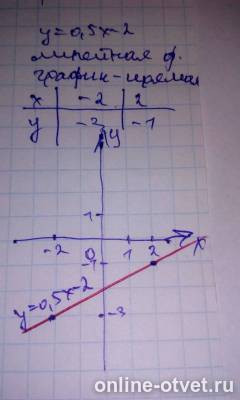 y=0,5x-2
линейная ф.
график-прямая
x -2 2
y -3 -1
y
1
-2 0 1 2 x
-1
y=0,5x-2
-3
online-otvet.ru